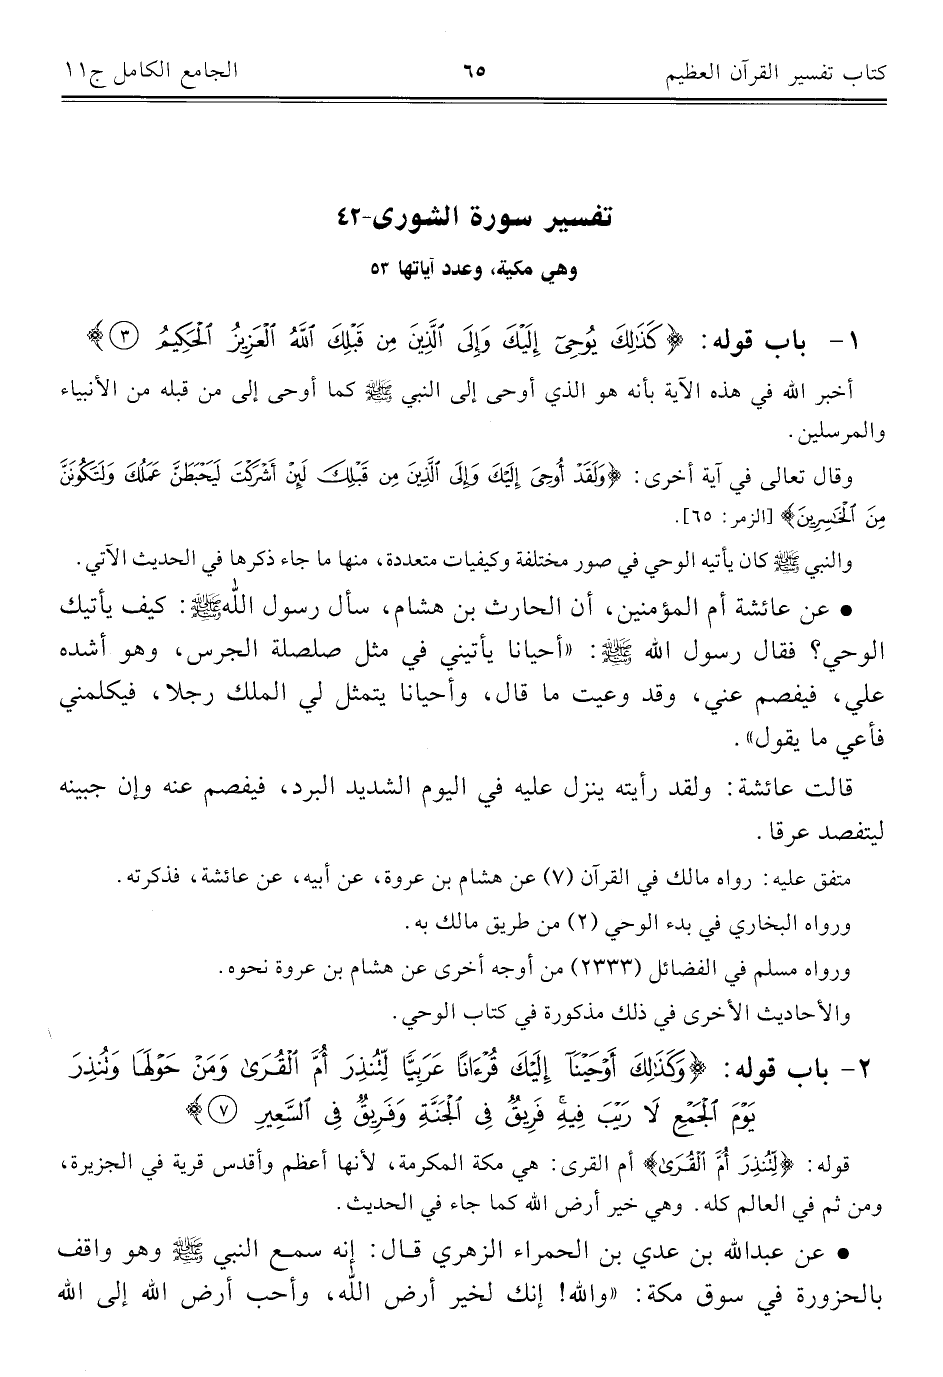 كتاب تفسير القرآن العظيم ٦٥ الجامع الكامل ج١١
تفسير سورة الشورى-٤٢
وهي مكية، وعدد آياتها ٥٣
١- باب قوله: ﴿كَذَٰلِكَ يُوحِيٓ إِلَيْكَ وَإِلَى ٱلَّذِينَ مِن قَبْلِكَ ٱللَّهُ ٱلْعَزِيزُ ٱلْحَكِيمُ ٣﴾
أخبر الله في هذه الآية بأنه هو الذي أوحى إلى النبي ﷺ كما أوحى إلى من قبله من الأنبياء
والمرسلين.
وقال تعالى في آية أخرى: ﴿وَلَقَدْ أُوحِيَ إِلَيْكَ وَإِلَى ٱلَّذِينَ مِن قَبْلِكَ لَئِنْ أَشْرَكْتَ لَيَحْبَطَنَّ عَمَلُكَ وَلَتَكُونَنَّ
مِنَ ٱلْخَٰسِرِينَ﴾ [الزمر: ٦٥].
والنبي ﷺ كان يأتيه الوحي في صور مختلفة وكيفيات متعددة، منها ما جاء ذكرها في الحديث الآتي.
• عن عائشة أم المؤمنين، أن الحارث بن هشام، سأل رسول الله ﷺ: كيف يأتيك
الوحي؟ فقال رسول الله ﷺ: «أحيانا يأتيني في مثل صلصلة الجرس، وهو أشده
علي، فيفصم عني، وقد وعيت ما قال، وأحيانا يتمثل لي الملك رجلا، فيكلمني
فأعي ما يقول».
قالت عائشة: ولقد رأيته ينزل عليه في اليوم الشديد البرد، فيفصم عنه وإن جبينه
ليتفصد عرقا.
متفق عليه: رواه مالك في القرآن (٧) عن هشام بن عروة، عن أبيه، عن عائشة، فذكرته.
ورواه البخاري في بدء الوحي (٢) من طريق مالك به.
ورواه مسلم في الفضائل (٢٣٣٣) من أوجه أخرى عن هشام بن عروة نحوه.
والأحاديث الأخرى في ذلك مذكورة في كتاب الوحي.
٢- باب قوله: ﴿وَكَذَٰلِكَ أَوْحَيْنَآ إِلَيْكَ قُرْءَانًا عَرَبِيًّا لِّتُنذِرَ أُمَّ ٱلْقُرَىٰ وَمَنْ حَوْلَهَا وَتُنذِرَ
يَوْمَ ٱلْجَمْعِ لَا رَيْبَ فِيهِ ۚ فَرِيقٌ فِى ٱلْجَنَّةِ وَفَرِيقٌ فِى ٱلسَّعِيرِ ٧﴾
قوله: ﴿لِّتُنذِرَ أُمَّ ٱلْقُرَىٰ﴾ أم القرى: هي مكة المكرمة، لأنها أعظم وأقدس قرية في الجزيرة،
ومن ثم في العالم كله. وهي خير أرض الله كما جاء في الحديث.
• عن عبدالله بن عدي بن الحمراء الزهري قال: إنه سمع النبي ﷺ وهو واقف
بالحزورة في سوق مكة: «والله! إنك لخير أرض الله، وأحب أرض الله إلى الله